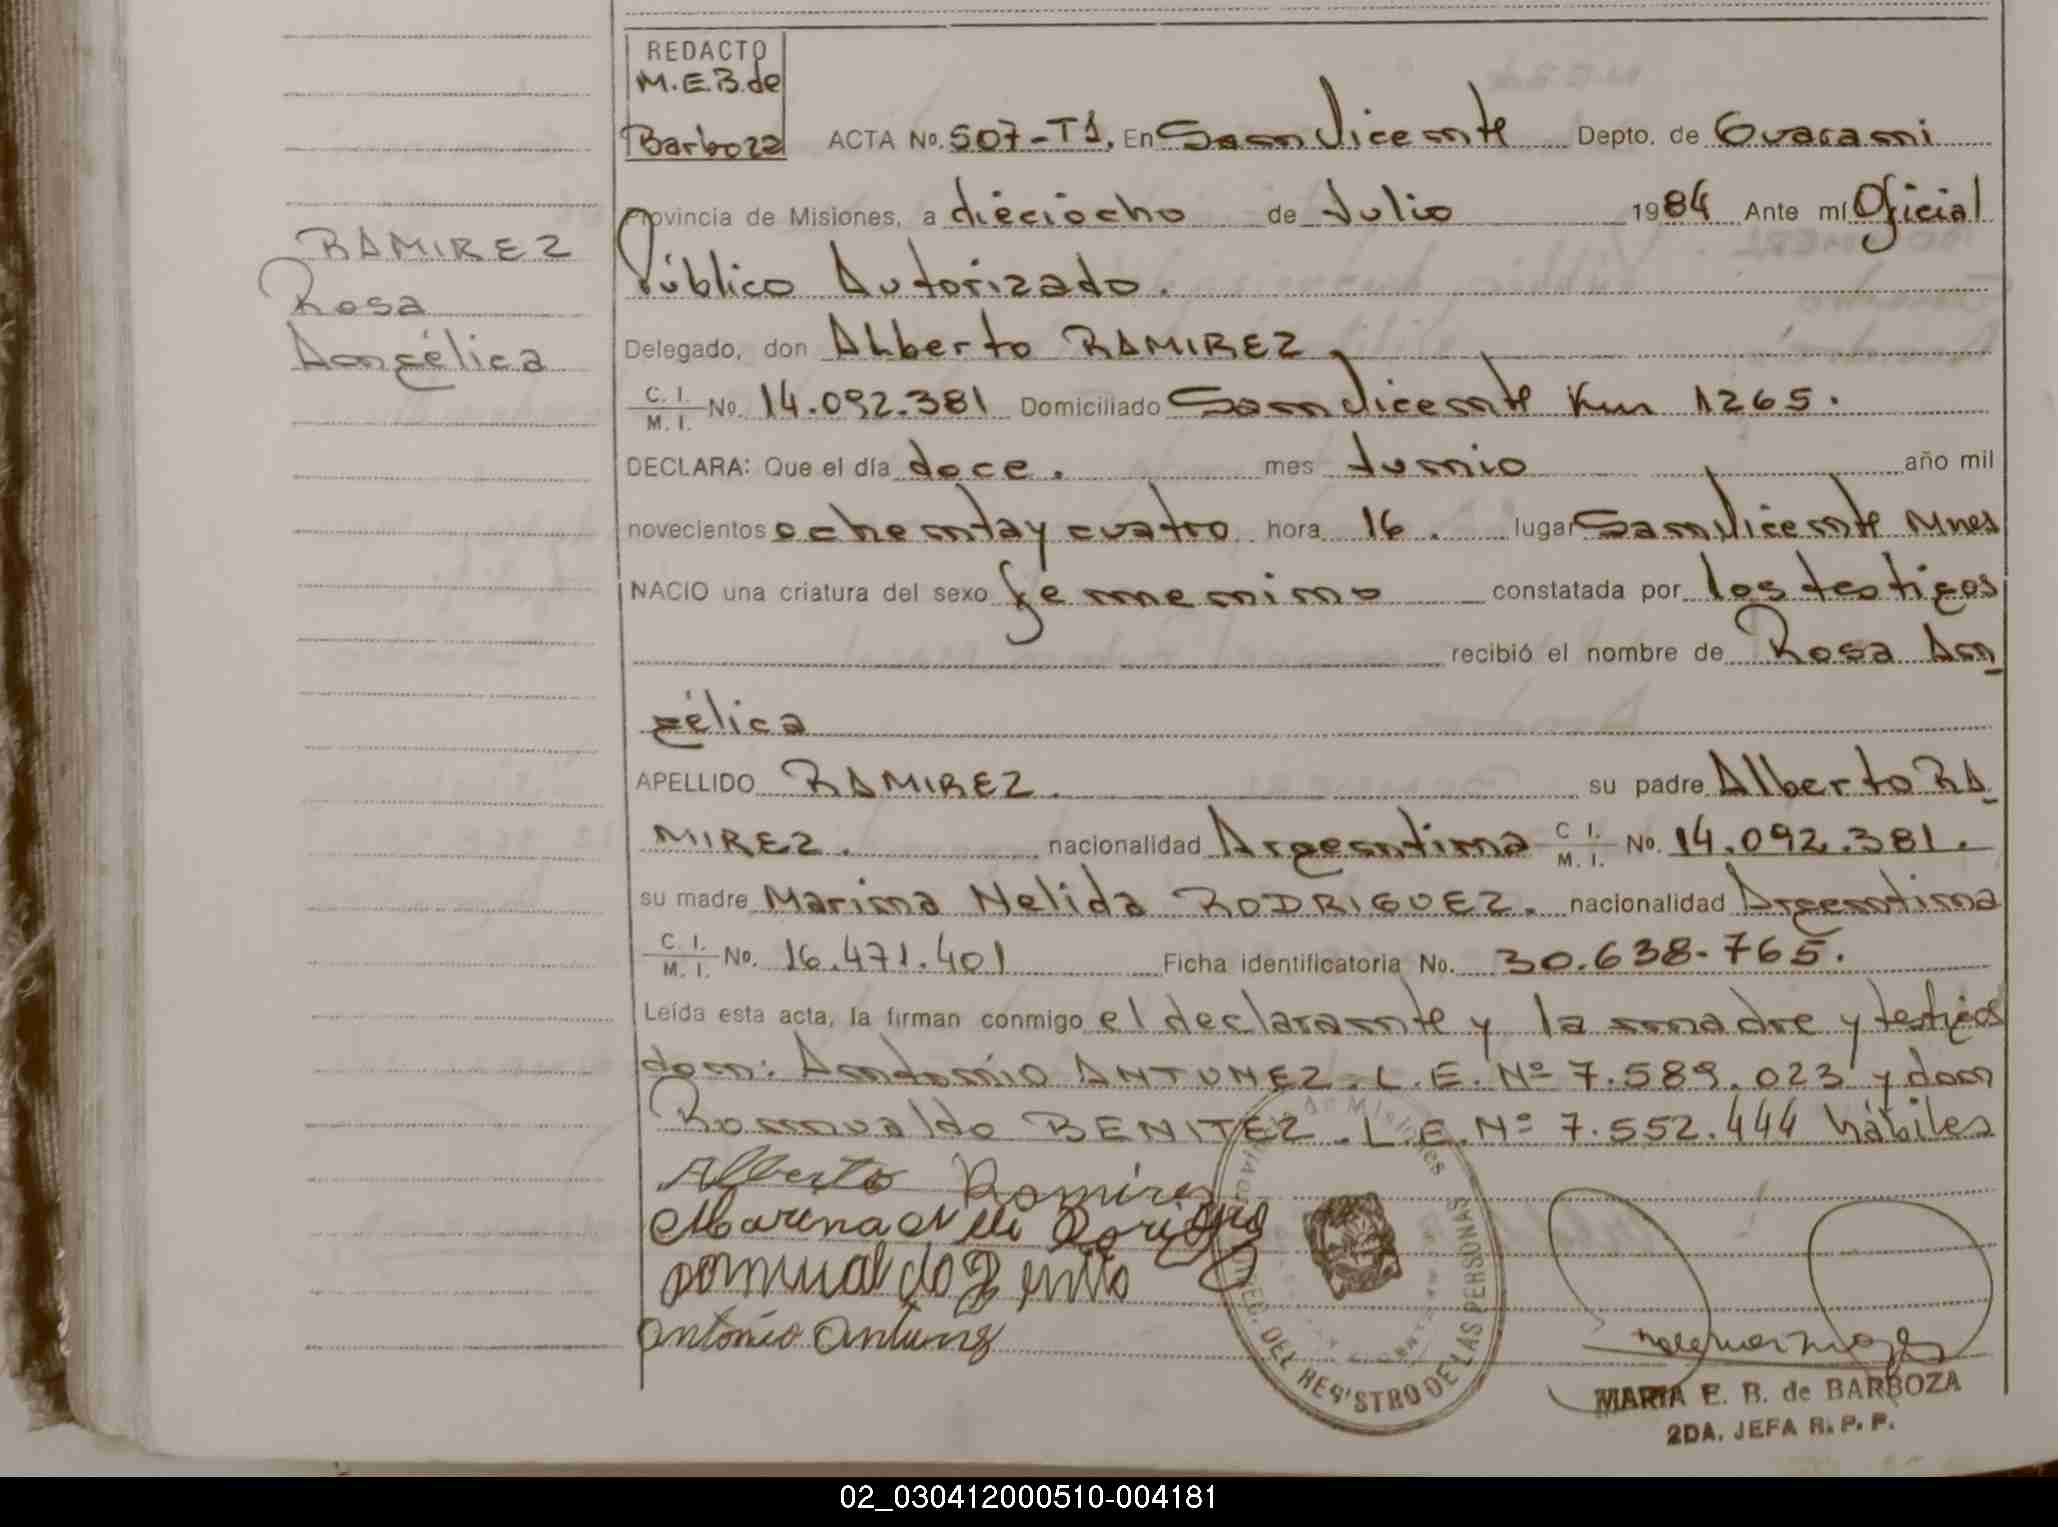 REDACTO
M.E.B.de
Barboza ACTA No. 507-T1. En San Vicente Depto. de Guarani
Provincia de Misiones, a dieciocho de Julio 1984 Ante mí Oficial
Público Autorizado.
RAMIREZ
Rosa
Angélica
Delegado, don Alberto RAMIREZ,
C. I. / M. I. No. 14.092.381 Domiciliado San Vicente Km 1265.
DECLARA: Que el día doce. mes Junio año mil
novecientos ochenta y cuatro hora 16. lugar San Vicente Mnes
NACIO una criatura del sexo femenino constatada por los testigos
recibió el nombre de Rosa An_
gélica
APELLIDO RAMIREZ. su padre Alberto RA_
MIREZ. nacionalidad Argentina C. I. / M. I. No. 14.092.381.
su madre Marina Nelida RODRIGUEZ. nacionalidad Argentina
C. I. / M. I. No. 16.471.401 Ficha identificatoria No. 30.638-765.
Leída esta acta, la firman conmigo el declarante y la madre y testigos
don: Antonio ANTUNEZ. L.E. Nº 7.589.023 y don
Romualdo BENITEZ. L.E. Nº 7.552.444 hábiles
Alberto Ramirez
Marina
romualdo
antonio antunez
Provincia de Misiones
DEL REGISTRO DE LAS PERSONAS
MARIA E. B. de BARBOZA
2DA. JEFA R. P. P.
02_030412000510-004181